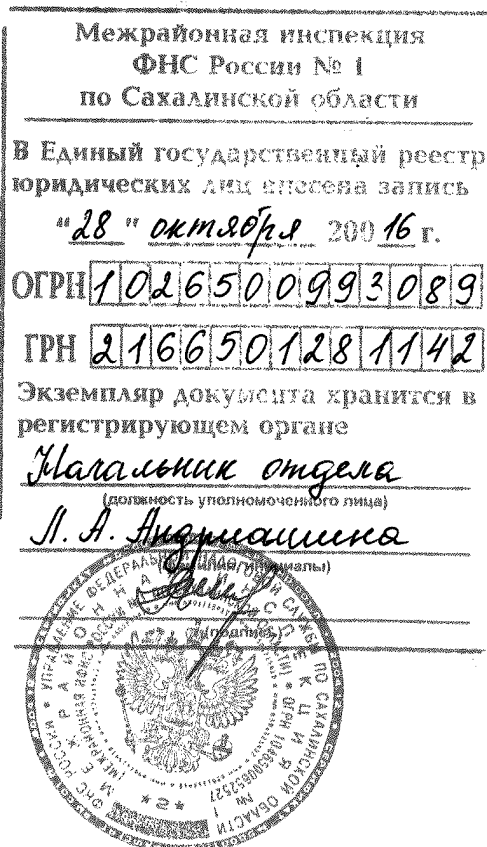 Межрайонная инспекция
ФНС России № 1
по Сахалинской области
В Единый государственный реестр
юридических лиц внесена запись
"28" октября 200 16 г.
ОГРН 1026500993089
ГРН 2166501281142
Экземпляр документа хранится в
регистрирующем органе
Начальник отдела
(должность уполномоченного лица)
Л. А. Андрюшина
(фамилия, инициалы)
(подпись)
ФНС РОССИИ * УПРАВЛЕНИЕ ФЕДЕРАЛЬНОЙ НАЛОГОВОЙ СЛУЖБЫ ПО САХАЛИНСКОЙ ОБЛАСТИ
МЕЖРАЙОННАЯ ИНСПЕКЦИЯ № 1
(МЕЖРАЙОННАЯ ИФНС РОССИИ * ОГРН 1046500652527
*2*